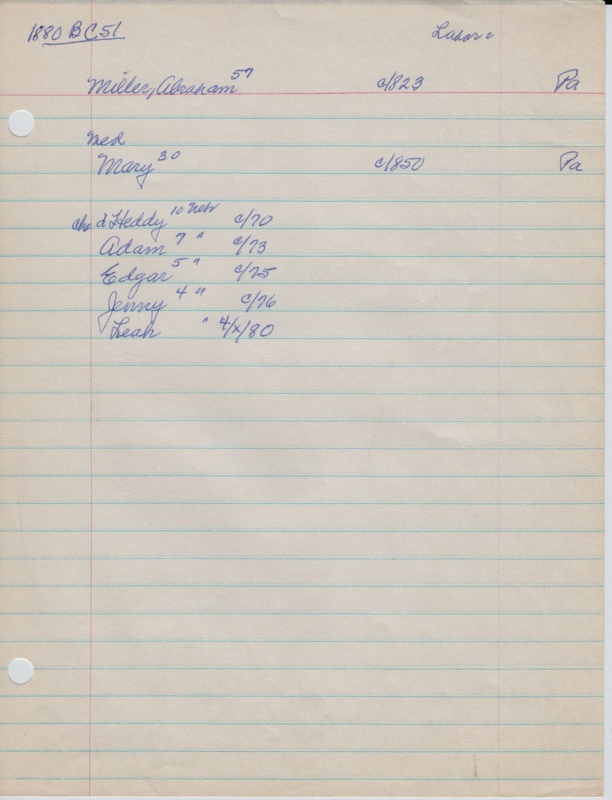 1880 BC51 Labor c
Miller, Abraham 57 c/823 Pa
Med
Mary 30 c/850 Pa
chn d Heddy 10 Nebr c/70
Adam 7 " c/73
Edgar 5 " c/75
Jenny 4 " c/76
Leah " 4/x/80